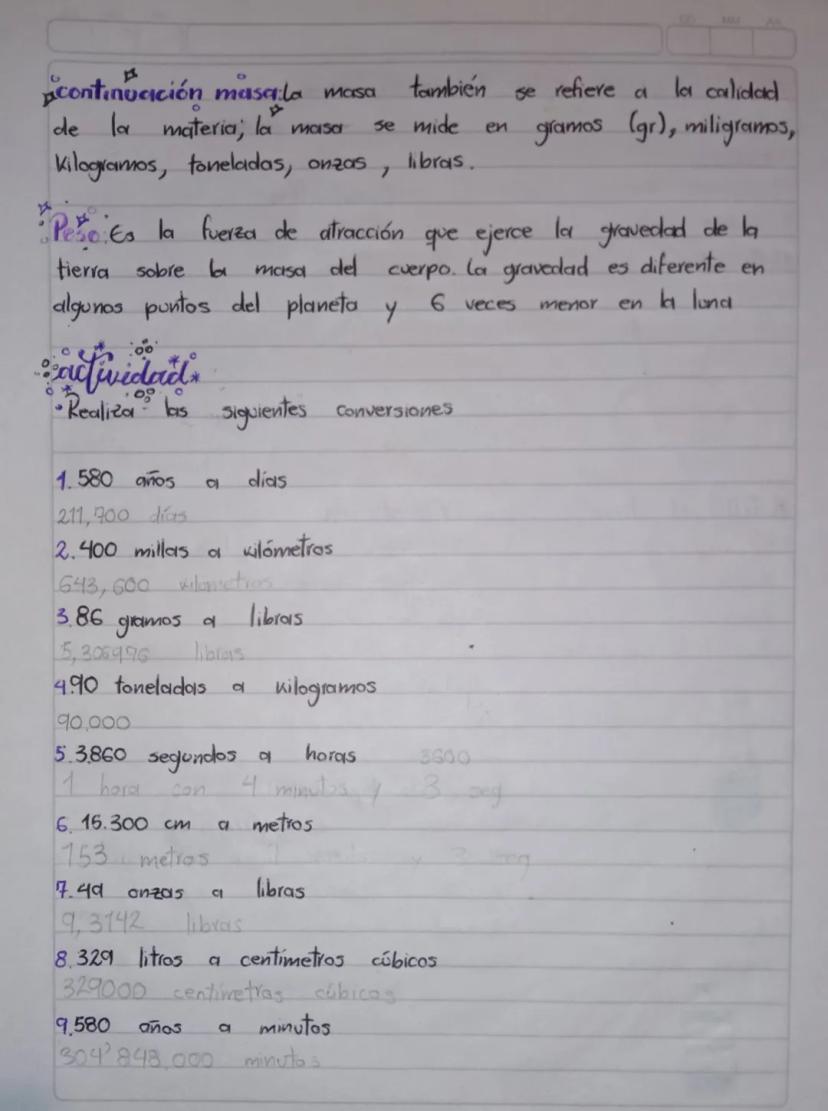 DD MM AA
continuación masa: La masa también se refiere a la calidad
de la materia; la masa se mide en gramos (gr), miligramos,
Kilogramos, toneladas, onzas, libras.
Peso: Es la fuerza de atracción que ejerce la gravedad de la
tierra sobre la masa del cuerpo. La gravedad es diferente en
algunos puntos del planeta y 6 veces menor en la luna
actividad
• Realiza las siguientes conversiones
1. 580 años a días
211,700 días
2. 400 millas a kilómetros
643,600 kilometros
3. 86 gramos a libras
libras
4. 90 toneladas a kilogramos
90.000
5. 3.860 segundos a horas 3600
1 hora con 4 minutos y 3 seg
6. 15.300 cm a metros
153 metros
7. 49 onzas a libras
9,3142 libras
8. 329 litros a centímetros cúbicos
329000 centimetros cúbicos
9. 580 años a minutos
304'848,000 minutos